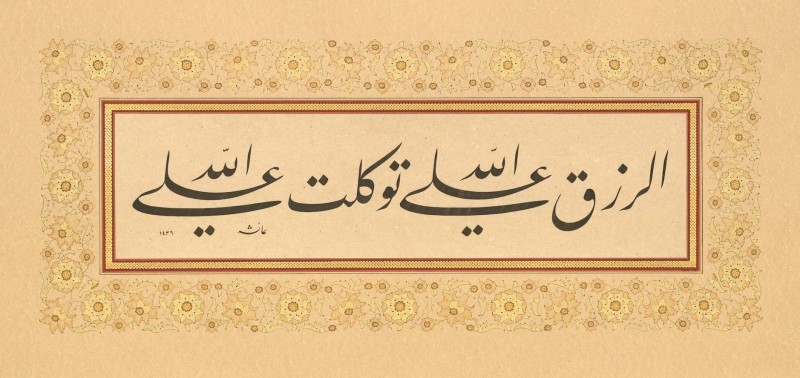 الرزق على الله توكلت على الله
عائشه ١٤٣٦